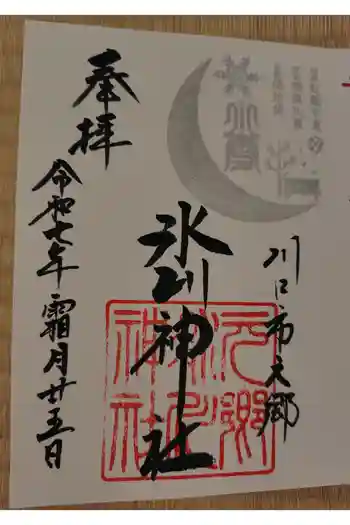 川口市元郷
氷川神社
元郷
氷川
神社
奉拝
令和七年霜月廿五日